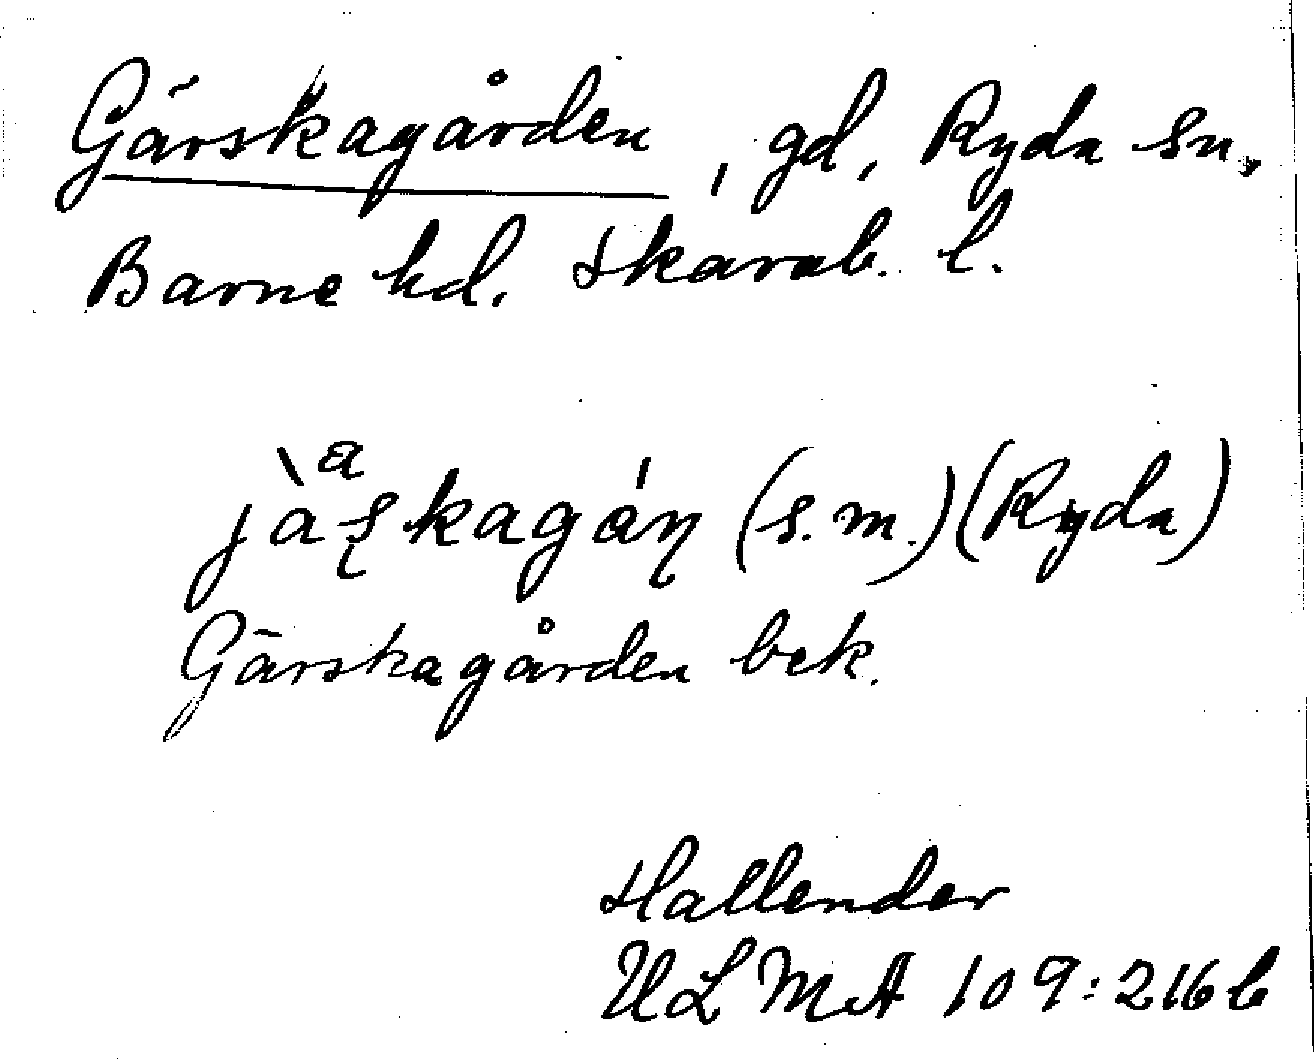 Gärskagården, gd, Ryda sn,
Barne hd. Skarab. l.
jàʂkagáɳ (s.m.) (Ryda)
Gärskagården bek.
Hallender
ULMA 109:216b